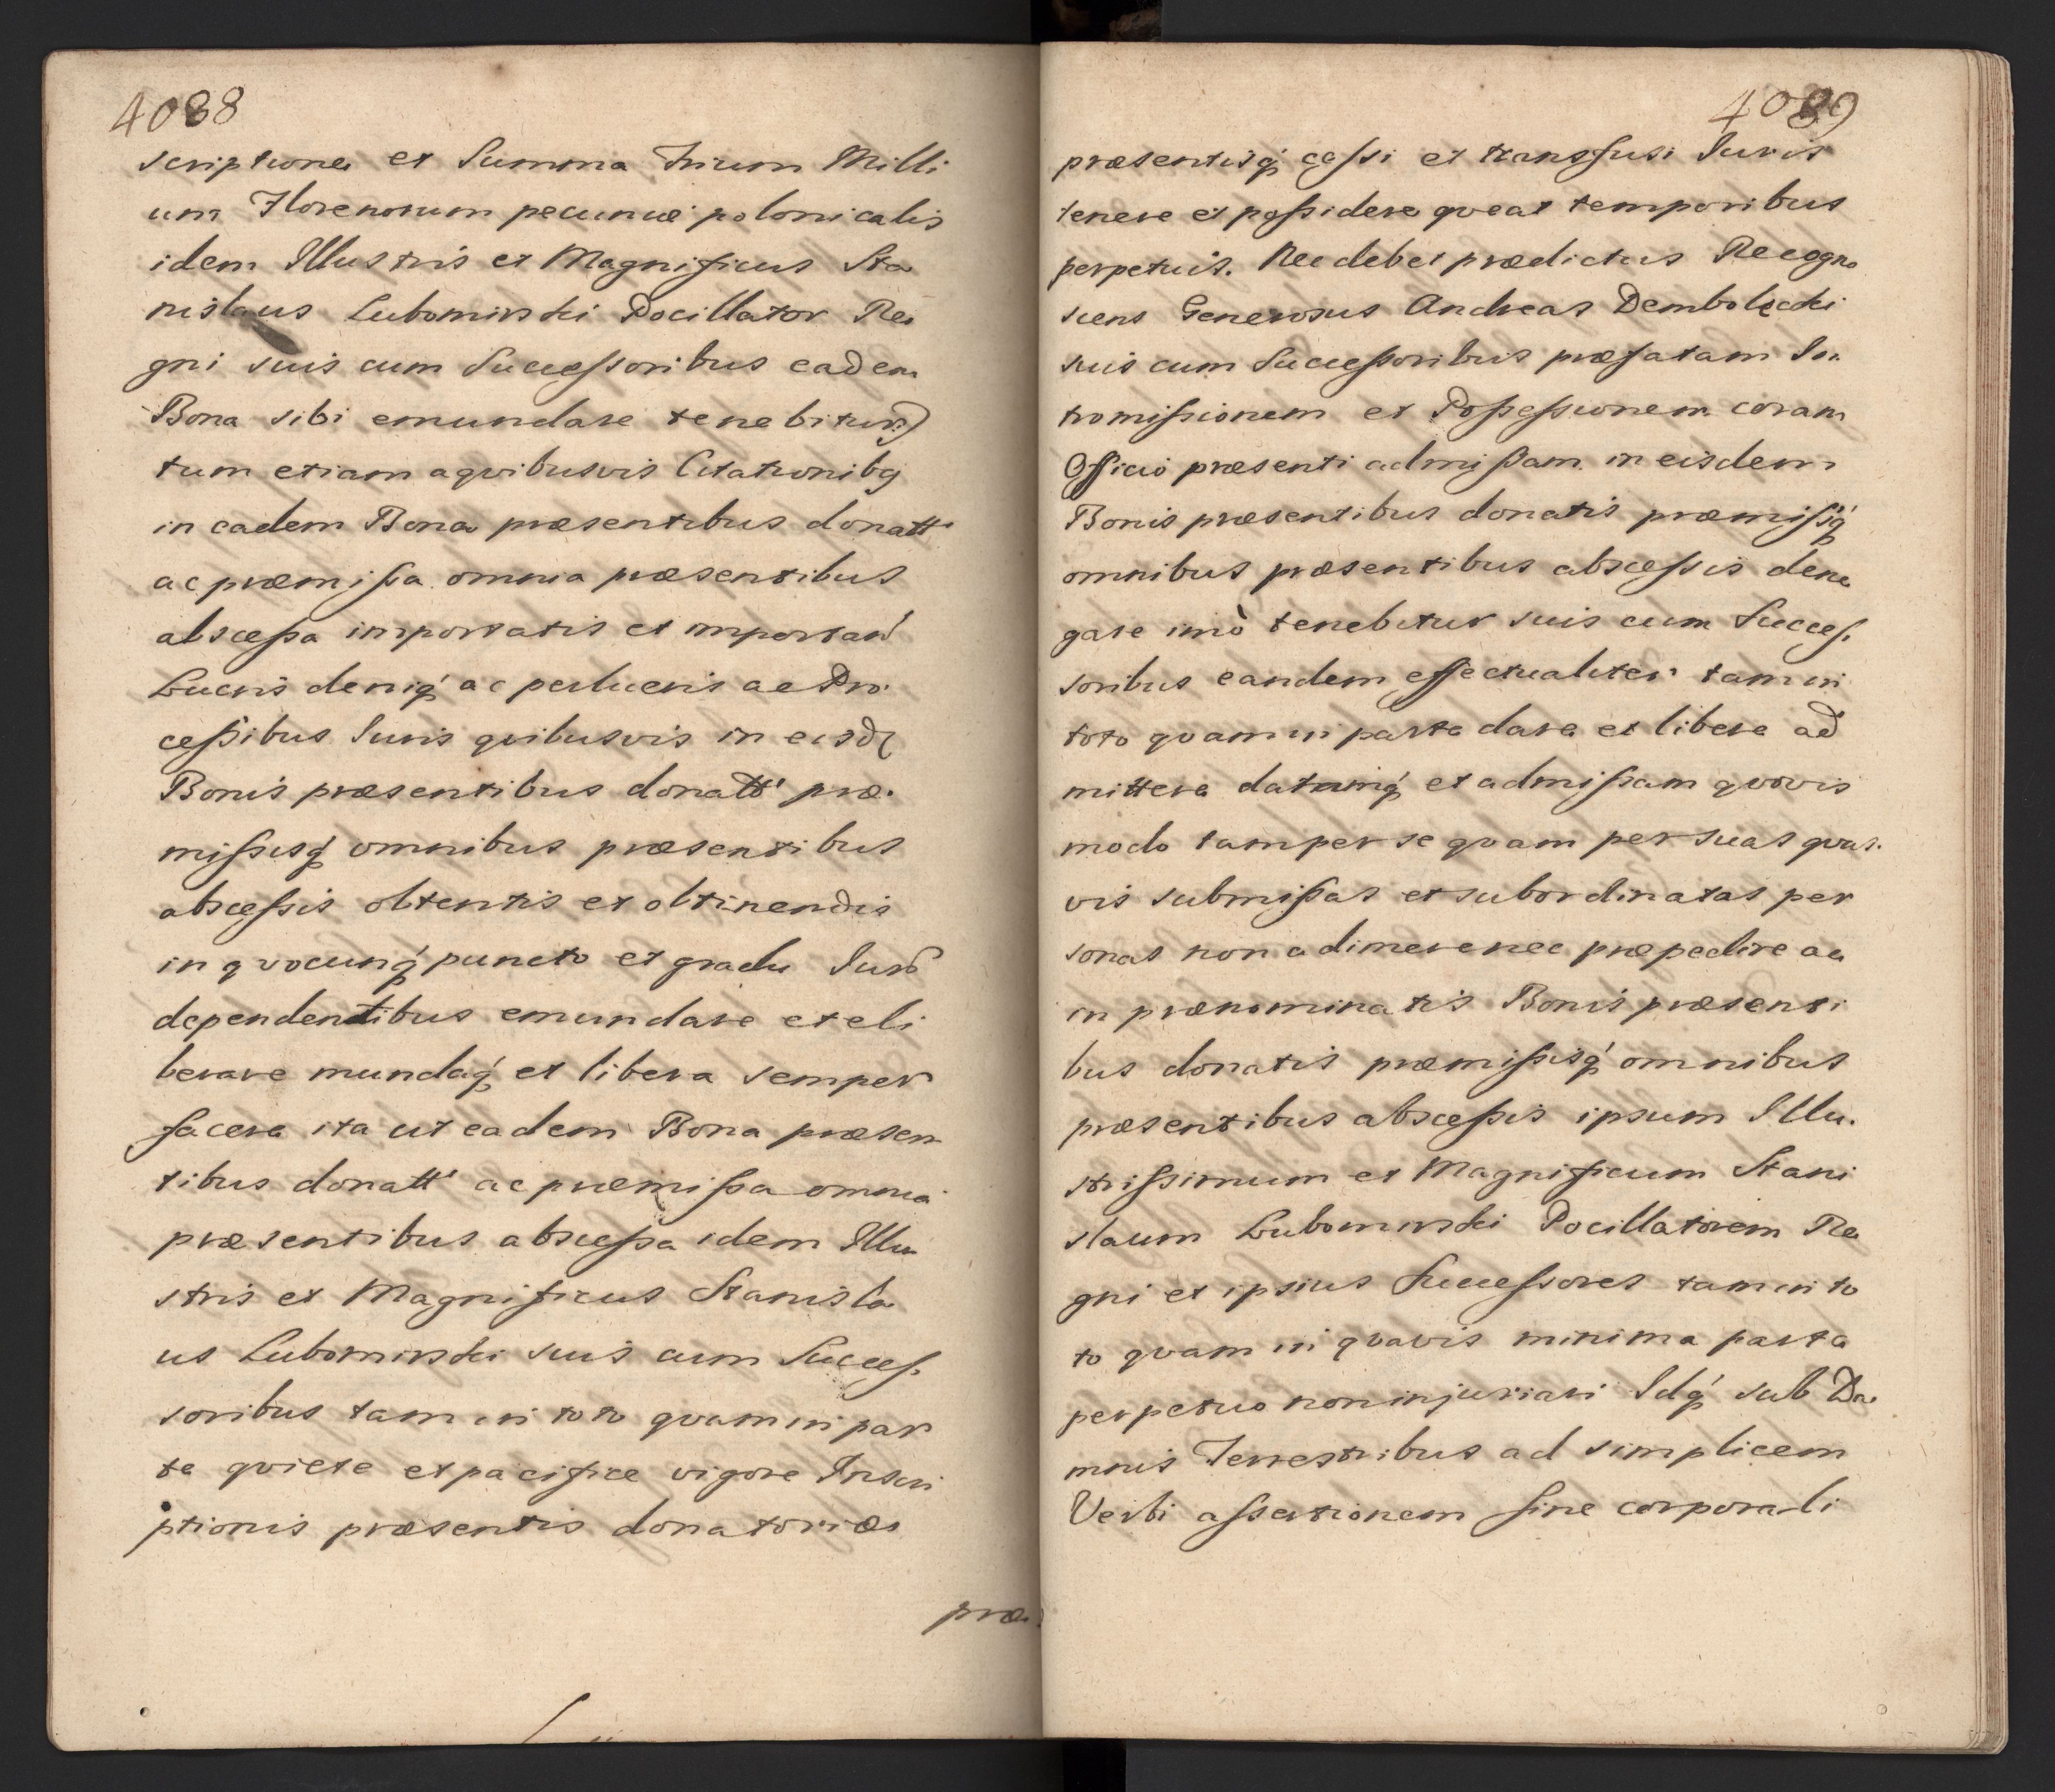 4088
scriptione et Summa Trium Milli
um Florenorum pecuniæ polonicalis
idem Illustris et Magnificus Sta
nislaus Lubomirski Pocillator Re
gni suis cum Successoribus eadem
Bona sibi emundare tenebitur
tum etiam a qvibusvis Citationibq
in eadem Bona præsentibus donatt
ac præmissa omnia præsentibus
abscessa importatis et importan
Lucris deniq ac perlucris ac Pro
cessibus Iuris qvibusvis in eisd
Bonis præsentibus donatt præ
missisq omnibus præsentibus
abscessis obtentis et obtinendis
in qvocunq puncto et gradu Iuris
dependentibus emundare et eli
berare mundaq et libera semper
facere ita ut eadem Bona præsen
tibus donatt ac præmissa omnia
præsentibus abscessa idem Illu
stris et Magnificus Stanisla
us Lubomirski suis cum Succes
soribus tam in toto qvam in par
te qviete et pacifice vigore Inscri
ptionis præsentis donatoriæ
præ
4089
præsentisq cessi et transfusi Iuris
tenere et possidere qveat temporibus
perpetuis. Nec debet prædictus Recogno
scens Generosus Andreas Dembolęcki
suis cum Successoribus præfatam In
tromissionem et Possessionem coram
Officio præsenti admissam in eisdem
Bonis præsentibus donatis præmissisq
omnibus præsentibus abscessis dene
gare imò tenebitur suis cum Succes
soribus eandem effectualiter tam in
toto qvam in parte dare et libere ad
mittere datamq et admissam qvovis
modo tam per se qvam per suas qvas
vis submissas et subordinatas per
sonas non adimere nec præpedire ac
in prænominatis Bonis præsenti
bus donatis præmissisq omnibus
præsentibus abscessis ipsum Illu
strissimum et Magnificum Stani
slaum Lubomirski Pocillatorem Re
gni et ipsius Successores tam in to
to qvam in qvavis minima parte
perpetuo non injuriari Idq sub Da
mnis Terrestribus ad simplicem
Verbi assertionem sine corporali